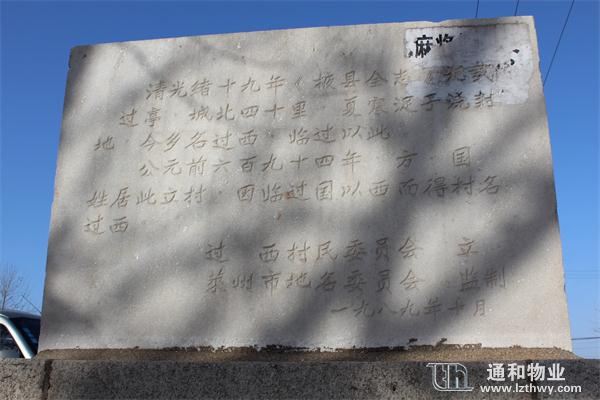 麻将
清光绪十九年《掖县全志》记载
过亭·城北四十里·夏寒浞子浇封
地·今乡名过西·临过以此
公元前六百九十四年 方·国
姓居此立村·因临过国以西而得村名
过西
过 西村民委员会 立
莱州市地名委员会 监制
一九八九年十月
通和物业
www.lzthwy.com